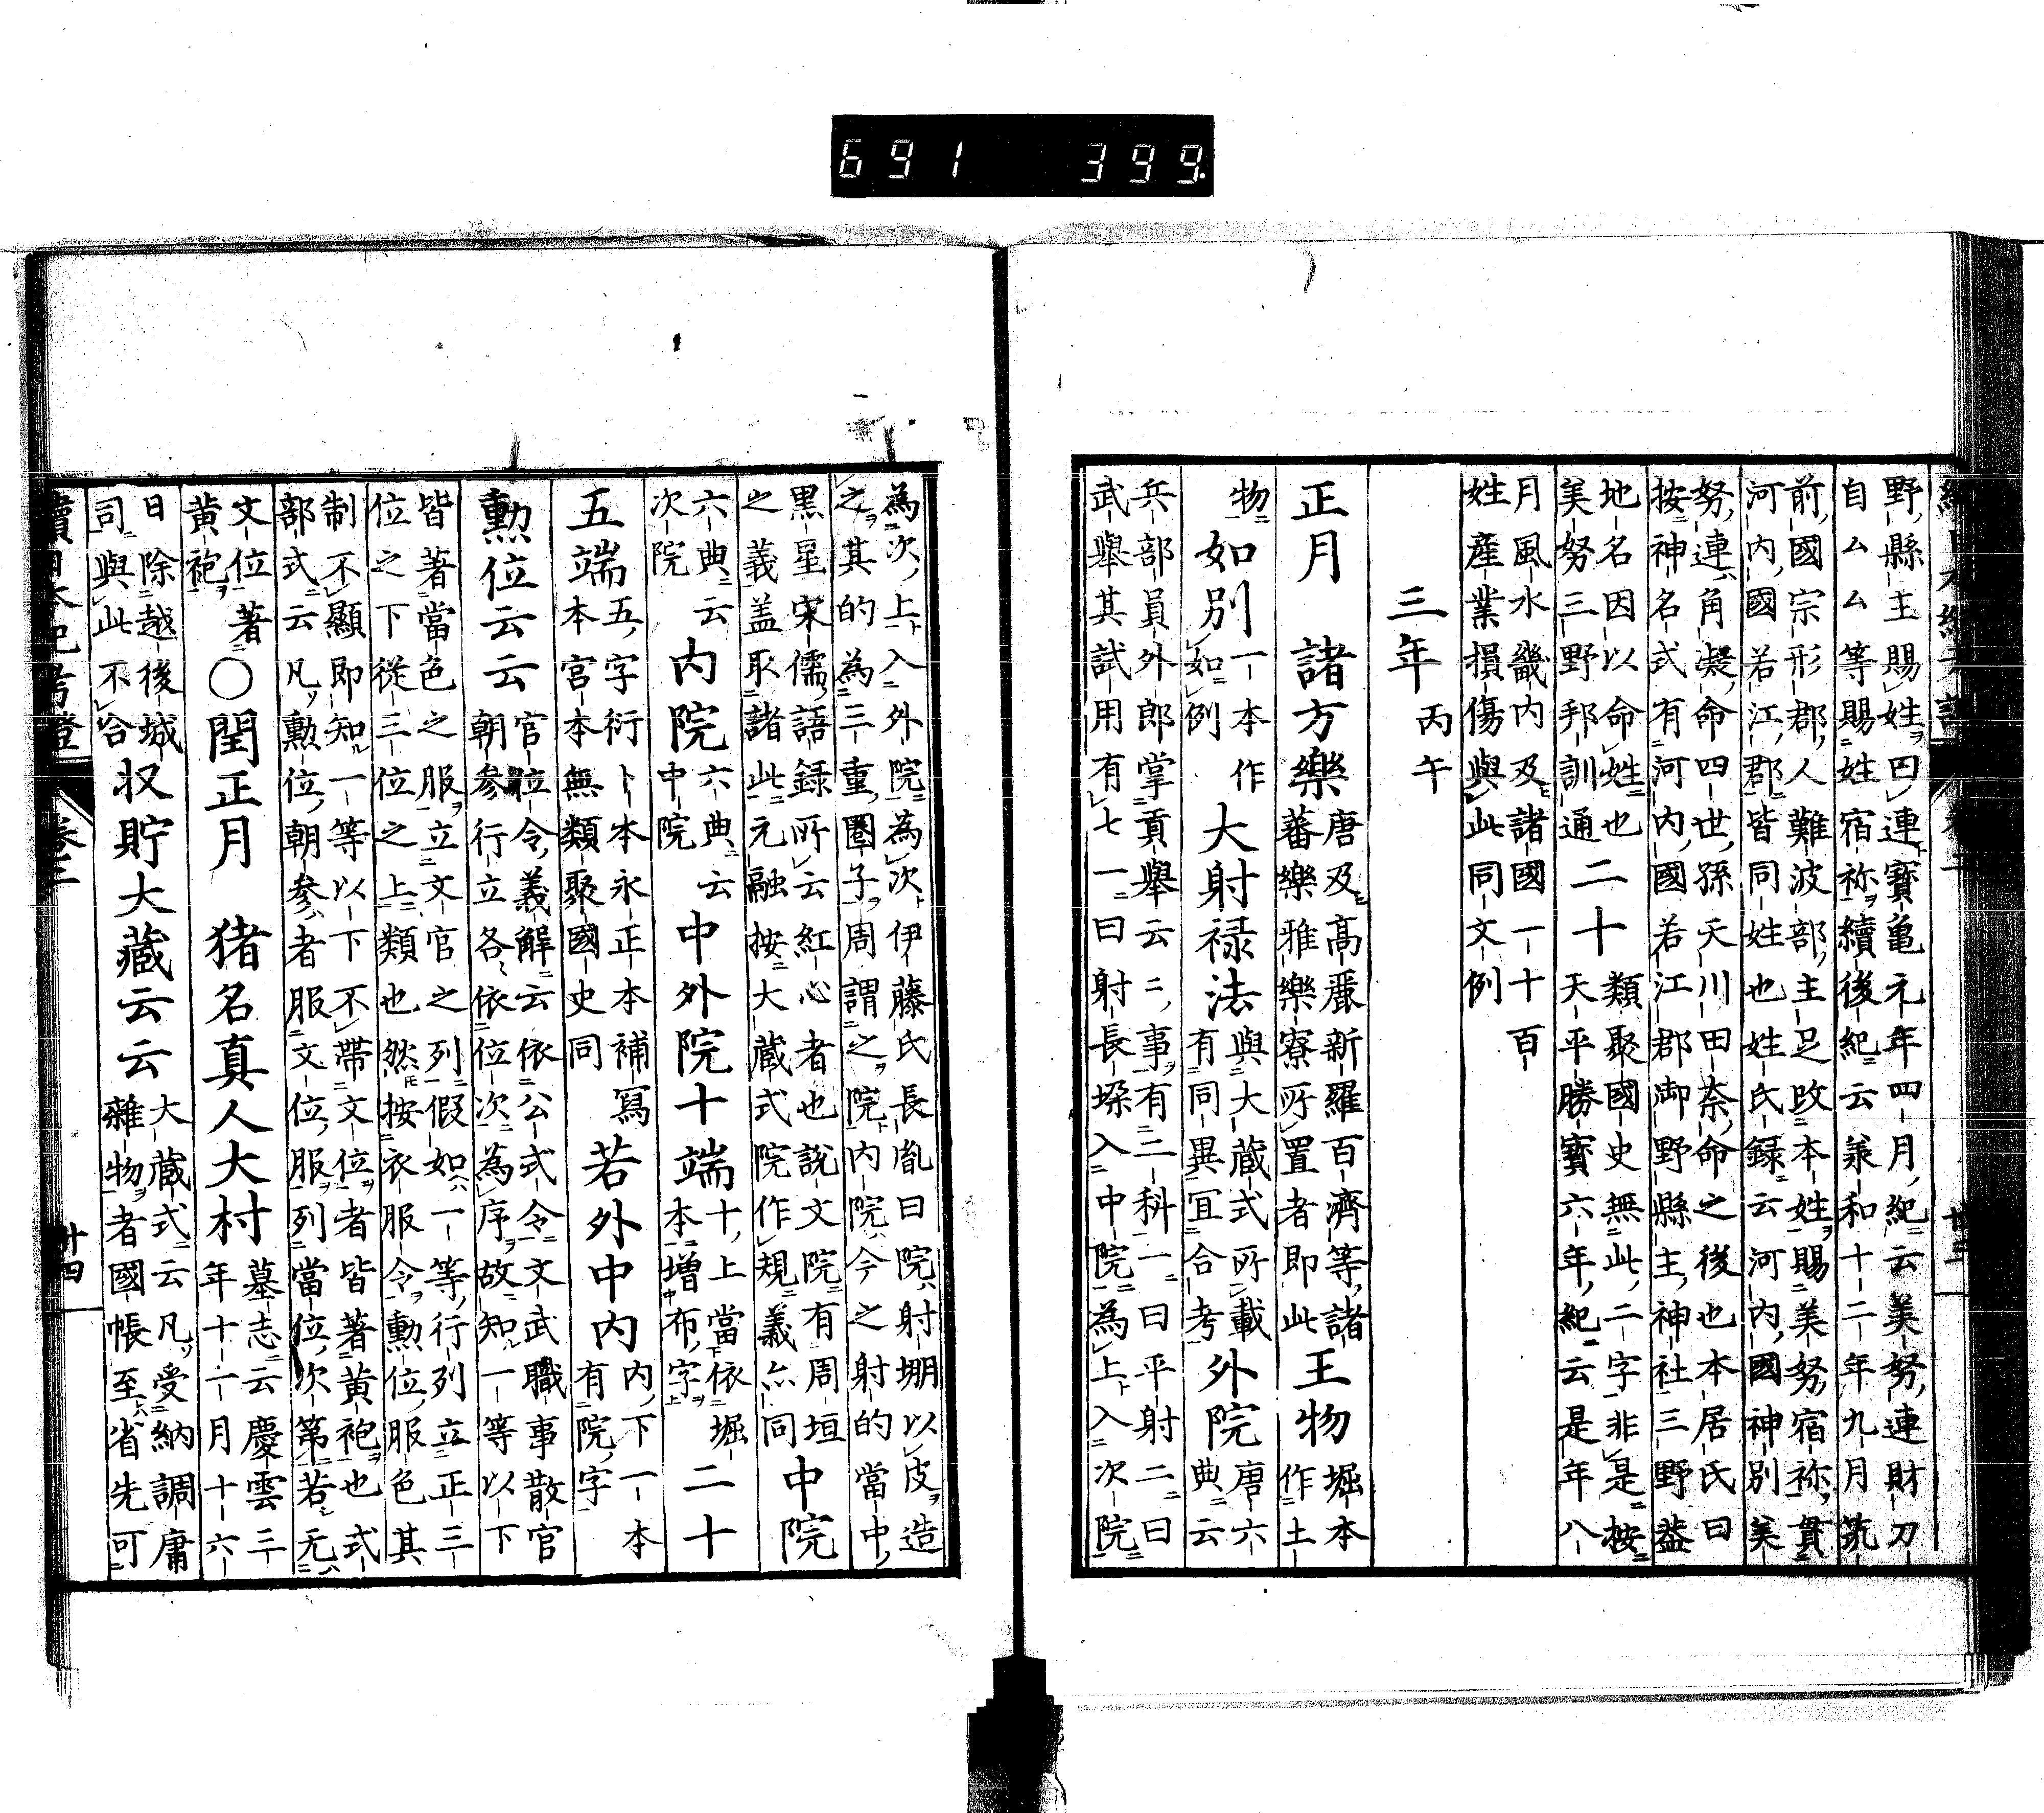 691 399.
野縣主賜姓四連寶亀元年四月紀云美努連財刀
自ムム等賜姓宿祢續後紀云羕和十二年九月筑
前國宗形郡人難波部主足改本姓賜美努宿祢貫
河内國若江郡皆同姓也姓氏録云河内國神別美
努連角凝命四世孫天川田奈命之後也本居氏曰
按神名式有河内國若江郡御野縣主神社三野蓋
地名因以命姓也
美努三野邦訓通
二十
類聚國史無此二字非是按
天平勝寶六年紀云是年八
月風水畿内及諸國一十百
姓産業損傷與此同文例
三年 丙午
正月
諸方樂
唐及高麗新羅百濟等諸
蕃樂雅樂寮所置者即此
王物
堀本
作土
物
如別
一本作
如例
大射禄法
與大蔵式所載
有同異宜合考
外院
唐六
典云
兵部員外郎掌貢舉云二事有二科一曰平射二曰
武舉其試用有七一曰射長垜入中院為上入次院
為次上入外院為次伊藤氏長胤曰院射堋以皮造
之其的為三重圏子周謂之院内院今之射的當中
黒星宋儒語録所云紅心者也説文院有周垣
之義盖取諸此元融按大蔵式院作規義亦同
中院
六典云
次院
内院
六典云
中院
中外院十端
十上當依堀
本増布字
二十
五端
五字衍卜本永正本補寫
本宮本無類聚國史同
若外中内
内下一本
有院字
勲位云云
官位令義解云依公式令文武職事散官
朝参行立各依位次為序故知一等以下
皆著當色之服立文官之列假如一等行列立正三
位之下從三位之上類也然按衣服令勲位服色其
制不顯即知一等以下不帶文位者皆著黄袍也式
部式云凡勲位朝参者服文位服列當位次第若无
文位著
黄袍
○閏正月
猪名真人大村
墓志云慶雲三
年十一月十六
日除越後城
司與此不合
収貯大蔵云云
大蔵式云凡受納調庸
雜物者國帳至省先可
卷三
廿四